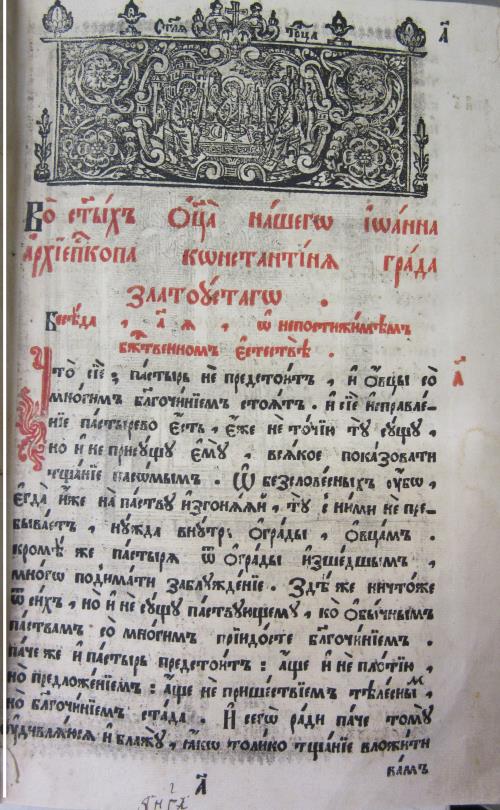 Ст҃аѧ трⷪ҇ца
а҃
Во ст҃ы́хъ Ѻ҆ц҃а̀ на́шегѡ і҆ѡа́нна
а҆рхїепⷭ҇копа кѡнстанті́нѧ гра́да
Златоꙋ́стагѡ .
Бесѣ́да , а҃ ѧ , ѡ҆ непостижи́мѣмъ
бж҃твенномъ є҆стествѣ̀ .
Что̀ сїѐ ; па́стырь не предстои́тъ , и҆ ѻ҆́вцы со
а҃
мно́гимъ бл҃гочи́нїемъ стоѧ́тъ . и҆ сїѐ и҆справле́-
нїе па́стырево є҆́сть , є҆́же не то́чїю тꙋ̀ сꙋ́щꙋ ,
но и҆ не прису́щꙋ є҆мꙋ̀ , всѧ́кое пока́зовати
тща́нїе пасо́мымъ . Ѿ безслове́сныхъ ᲂу҆́бѡ ,
є҆гда̀ и҆́же на па́ствꙋ и҆згонѧ́ѧй , тꙋ̀ с ни́ми не пре-
быва́етъ , нꙋ́жда внꙋ́трь ѻ҆гра́ды , ѻ҆вца́мъ .
кромѣ́ же па́стырѧ ѿ ѻ҆гра́ды и҆зше́дшымъ ,
мно́гѡ под̾има́ти заблꙋжде́нїе . Здѣ́ же ничто́же
ѿ си́хъ , но и҆ не сꙋ́щꙋ па́ствꙋющемꙋ , ко ѻ҆бы́чнымъ
па́ствамъ со мно́гимъ прїидо́сте бл҃гочи́нїемъ .
па́че же и҆ па́стырь предстои́тъ : а҆́ще и҆ не пло́тїю ,
но предложе́нїемъ : а҆́ще не прише́ствїемъ тѣле́снымъ
но бл҃гочи́нїемъ ста́да . И҆ сегѡ̀ ра́ди па́че томꙋ̀
ᲂу҆дивлѧ́юсѧ и҆ блажꙋ̀ , ꙗ҆́кѡ толи́ко тща́нїе вложи́ти
ва́мъ
а҃